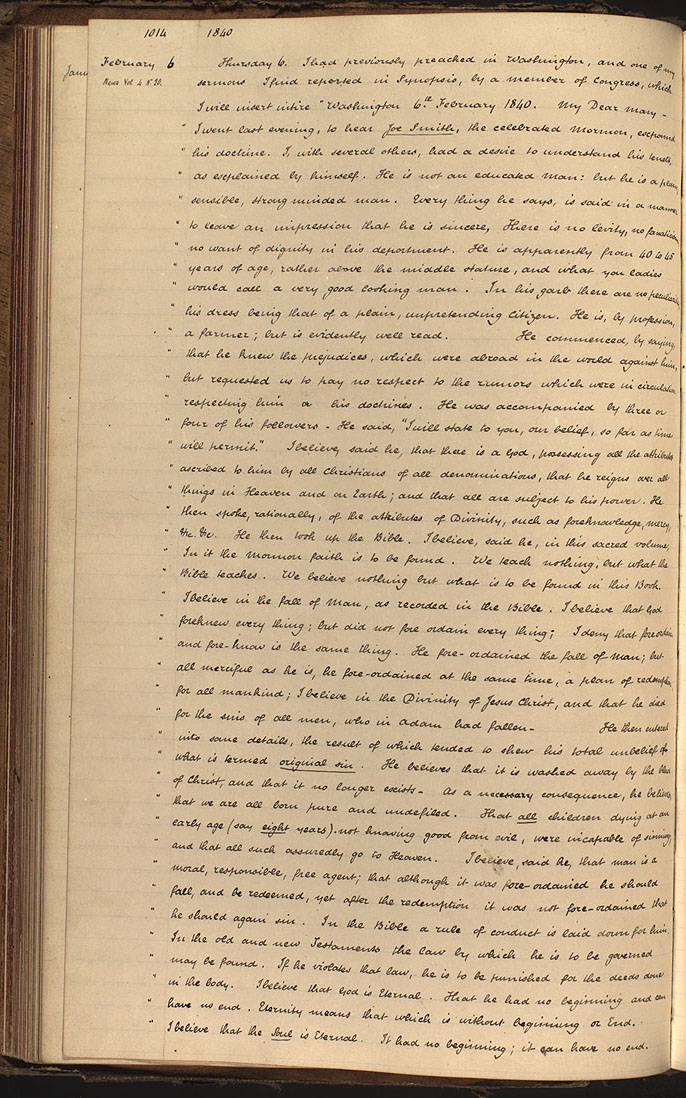 1014 1840
Janu
February 6 Thursday 6. I had previously preached in Washington, and one of my
News Vol 4 No 20. sermons I find reported in Synopsis, by a member of Congress, which
I will insert intire "Washington 6th. February 1840. My Dear Mary -
" I went last evening, to hear Joe Smith, the celebrated Mormon, expound
" his doctrine. I, with several others, had a desire to understand his tenets,
" as explained by himself. He is not an educated man: but he is a plain,
" sensible, strong minded man. Every thing he says, is said in a manner
" to leave an impression that he is sincere, There is no levity, no fanaticism
" no want of dignity in his deportment. He is apparently from 40 to 45
" years of age, rather above the middle stature, and what you ladies
" would call a very good looking man. In his garb there are no peculiarities
" his dress being that of a plain, unpretending Citizen. He is, by profession,
" a farmer; but is evidently well read. He commenced, by saying,
" that he knew the prejudices, which were abroad in the world against him,
" but requested us to pay no respect to the rumors which were in circulation
" respecting him or his doctrines. He was accompanied by three or
" four of his followers - He said, "I will state to you, our belief, so far as time
" will permit." I believe, said he, that there is a God, possessing all the attributes
" ascribed to him by all Christians of all denominations, that he reigns over all
" things in Heaven and on Earth; and that all are subject to his power. He
" then spoke, rationally, of the attributes of Divinity, such as foreknowledge, mercy,
" &c. &c. He then took up the Bible. I believe, said he, in this sacred volume,
" In it the Mormon faith is to be found. We teach nothing, but what the
" Bible teaches. We believe nothing but what is to be found in this Book.
" I believe in the fall of Man, as recorded in the Bible. I believe that God
" foreknew every thing; but did not fore ordain every thing; I deny that fore ordain
" and fore-know is the same thing. He fore-ordained the fall of Man; but
" all merciful as he is, he fore-ordained at the same time, a plan of redemption
" for all mankind; I believe in the Divinity of Jesus Christ, and that he died
" for the sins of all men, who in Adam had fallen - He then entered
" into some details, the result of which tended to shew his total unbelief of
" what is termed original sin. He believes that it is washed away by the blood
" of Christ, and that it no longer exists - As a necessary consequence, he believes,
" that we are all born pure and undefiled. That all children dying at an
" early age (say eight years). not knowing good from evil, were incapable of sinning,
" and that all such assuredly go to Heaven. I believe, said he, that man is a
" moral, responsible, free agent; that although it was fore-ordained he should
" fall, and be redeemed, yet after the redemption it was not fore-ordained that
" he should again sin. In the Bible a rule of conduct is laid down for him.
" In the old and new Testaments the law by which he is to be governed
" may be found. If he violates that law, he is to be punished for the deeds done
" in the body. I believe that God is Eternal. That he had no beginning and can
" have no end. Eternity means that which is without beginning or End.
" I believe that the Soul is Eternal. It had no beginning; it can have no end.